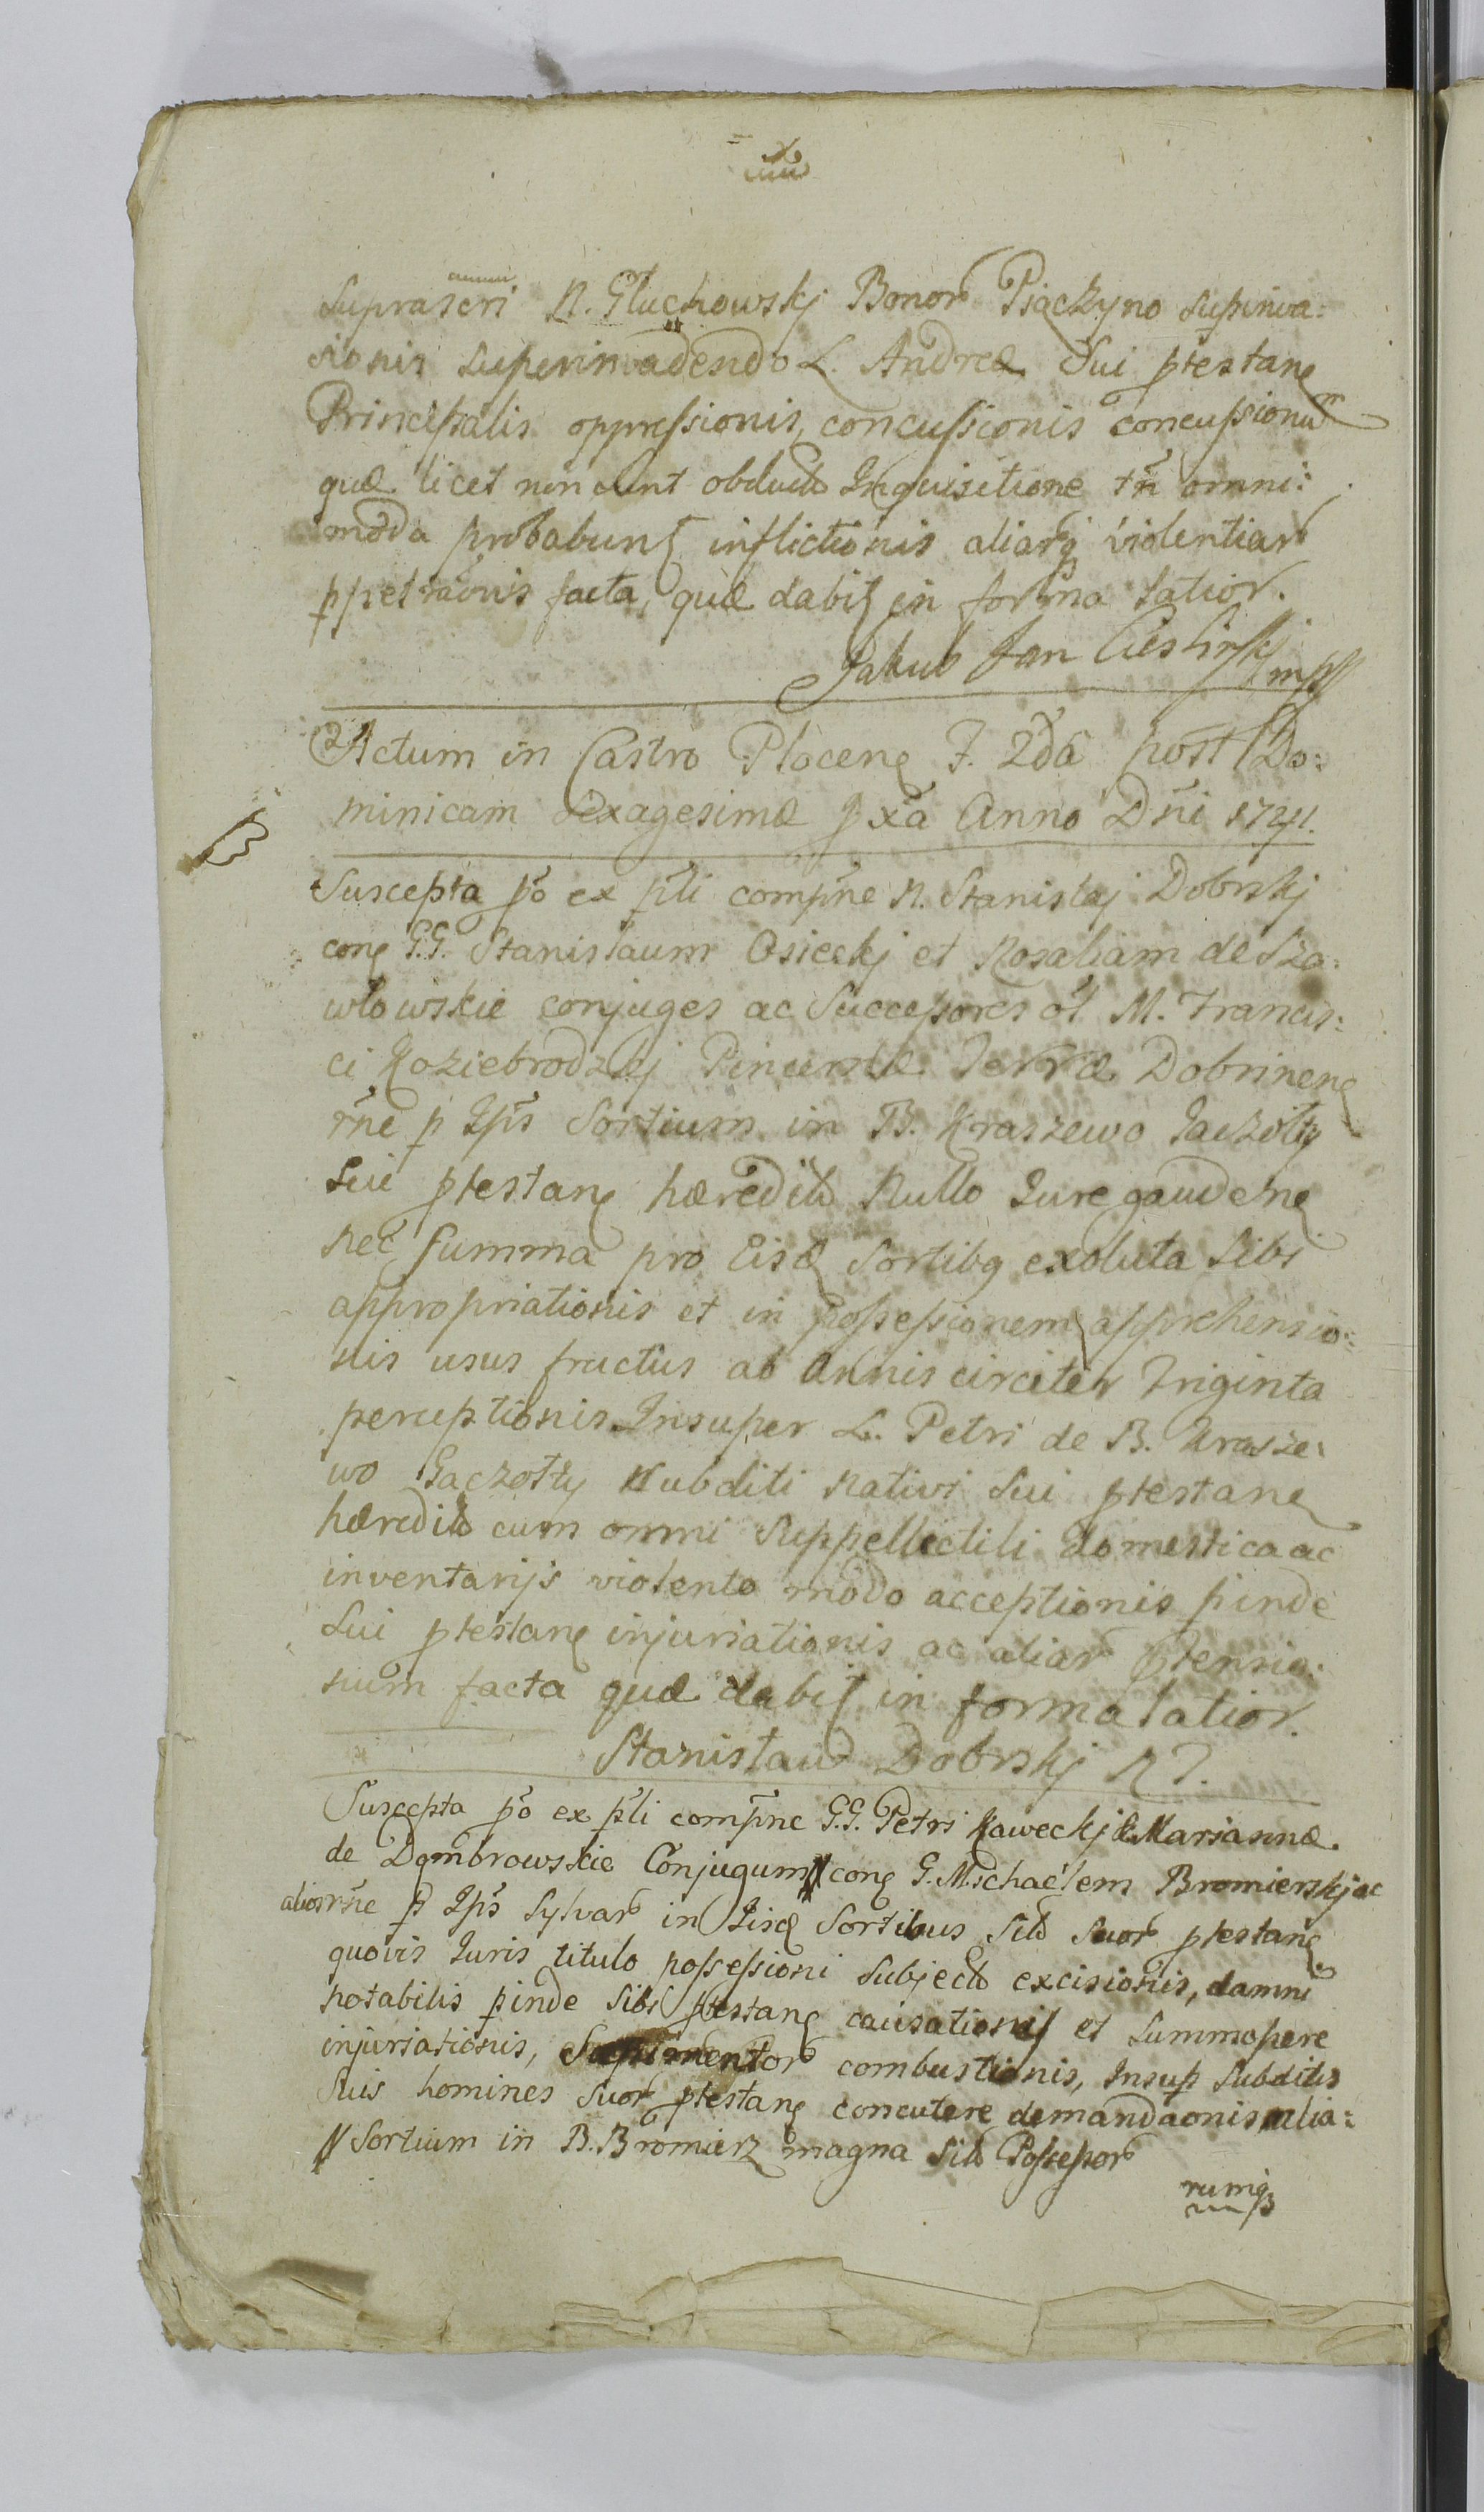 suprascri N. Głuchowskj Bonor Psączyno supinva:
sionis superinvadendo L. Andreæ Sui ptestane
Principalis oppressionis, concussionis concussionu
quæ licet non sunt obducta Inquisitione tn̄ omni:
moda probabunt inflictionis aliarq violentiar
ppetraōnis facta, quæ dabit in forma latior.
Jakub Jan Cieslinskj mpp
Actum in Castro Plocene F. 2da post Do:
minicam Sexagesimæ pxa Anno Dn̄i 1741.
Suscepta po ex pli compne N. Stanislaj Dobrskj
cone G.G. Stanislaum Osieckj et Rosaliam de Sza:
włowskie conjuges ac Successores ol M. Francis:
ci Koziebrodzkj Pincernæ Terræ Dobrinene
rn̄e p Ips Sortium in B. Kraszewo Gaczołty
Sui ptestane hæredit Nullo Jure gaudene
nec summa pro Eisd Sortibq exoluta Sibi
appropriationis et in possessionem apprehensio:
nis usus fructus ab Annis circiter Triginta
perceptionis Insuper L. Petri de B. Krasze:
wo Gaczołty Subditi Nativi Sui ptestane
hæredit cum omni suppellectili domestica ac
inventarijs violento modo acceptionis pinde
Sui ptestane injuriationis ac aliar ptensio:
num facta quæ dabit in forma latior.
Stanislaus Dobrskj N T.
Suscepta po ex pli compne G.G. Petri Kaweckj & Mariannæ
de Dombrowskie Conjugum // cone G. Michaelem Bromierskj ac
alios rn̄e p Ips Sylvar in Iisd Sortibus Sit Suor ptestane
quovis Juris titulo possessioni Subject excisionis, damni
notabilis pinde Sibi ptestane causationis et Summopere
injuriationis, combustionis, Insup Subditis
Suis homines Suor ptestane concutere demandaonis alia:
// Sortium in B. Bromierz magna Sit Possessor
rumq